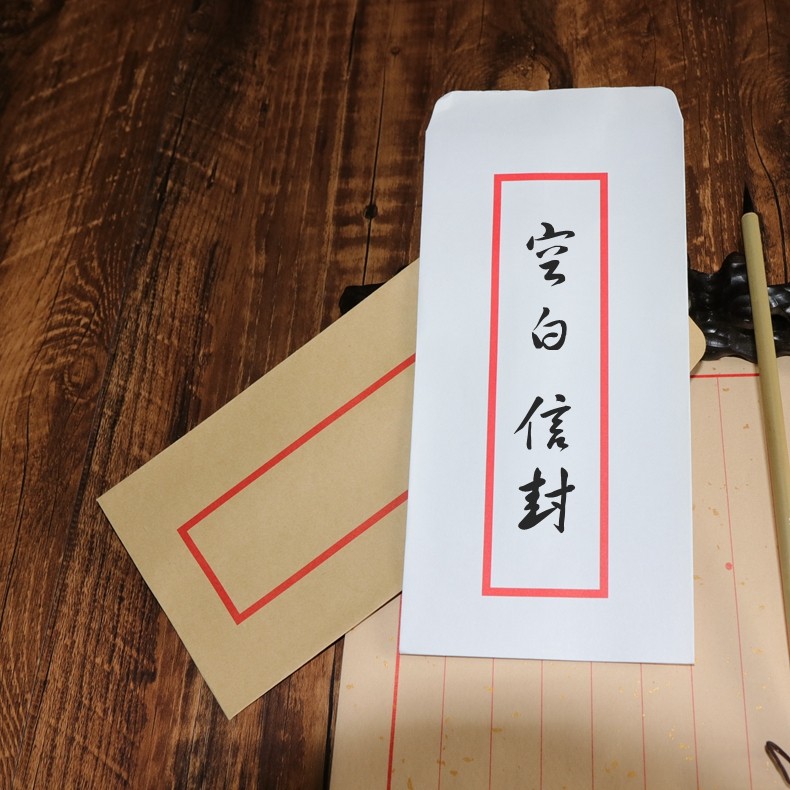 空白信封